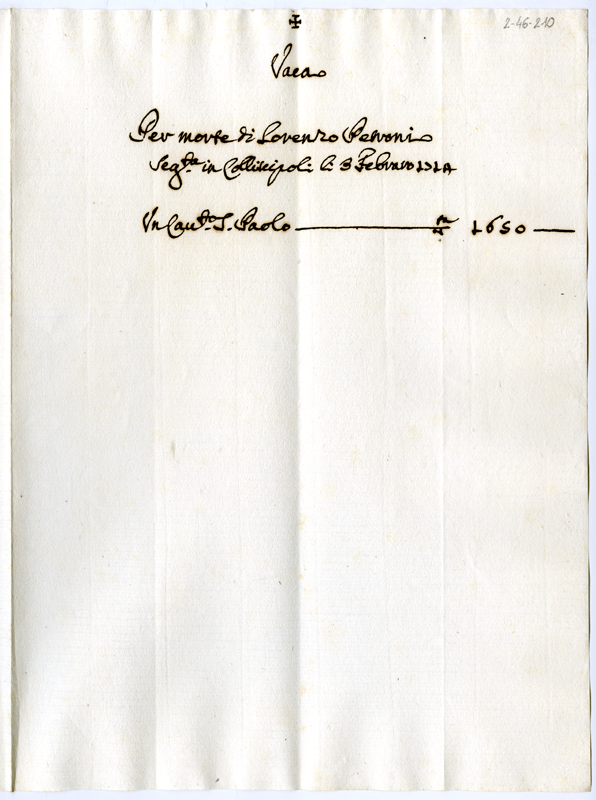 2-46-210
✠
Vaca
Per morte di Lorenzo Petroni
Seg.ta in Colliscipoli li 3 Febraro 1714
Un Cau.to S. Paolo 1650